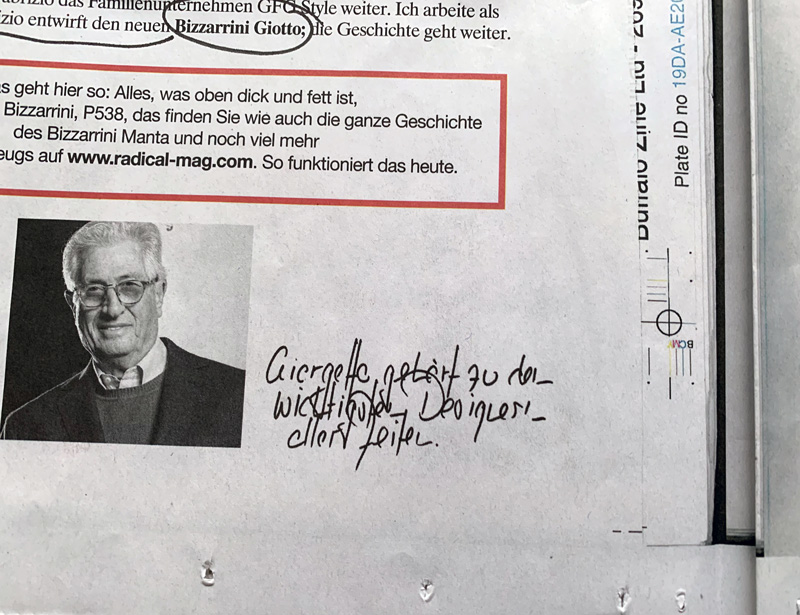 das Familienunternehmen GFG Style weiter. Ich arbeite als
entwirft den neuen Bizzarrini Giotto; die Geschichte geht weiter.
geht hier so: Alles, was oben dick und fett ist,
Bizzarrini, P538, das finden Sie wie auch die ganze Geschichte
des Bizzarrini Manta und noch viel mehr
auf www.radical-mag.com. So funktioniert das heute.
gehört zu den
wichtigsten Designern
aller Zeiten.
Buffalo Zine Ltd
Plate ID no 19DA-AE20
BCM